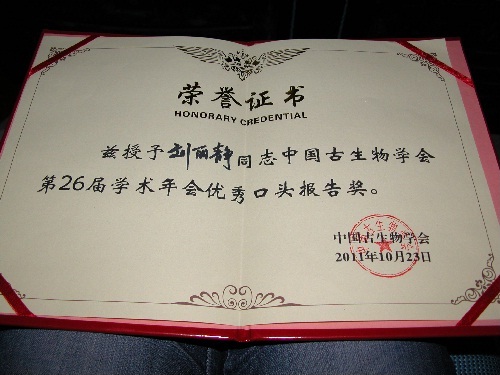 荣誉证书
HONORARY CREDENTIAL
兹授予刘丽静同志中国古生物学会
第26届学术年会优秀口头报告奖。
中国古生物学会
2011年10月23日